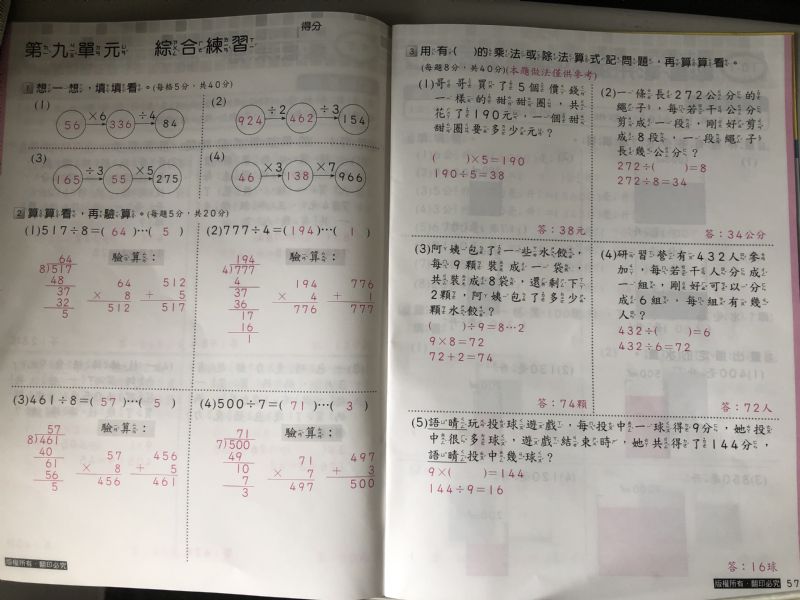 得分
第九單元 綜合練習
1 想一想,填填看。(每格5分,共40分)
(1) 56 ×6 336 ÷4 84
(2) 924 ÷2 462 ÷3 154
(3) 165 ÷3 55 ×5 275
(4) 46 ×3 138 ×7 966
2 算算看,再驗算。(每題5分,共20分)
(1)517÷8=( 64 )…( 5 )
64
8)517
48
37
32
5
驗算:
64
× 8
512
512
+ 5
517
(2)777÷4=(194)…( 1 )
194
4)777
4
37
36
17
16
1
驗算:
194
× 4
776
776
+ 1
777
(3)461÷8=( 57 )…( 5 )
57
8)461
40
61
56
5
驗算:
57
× 8
456
456
+ 5
461
(4)500÷7=( 71 )…( 3 )
71
7)500
49
10
7
3
驗算:
71
× 7
497
497
+ 3
500
版權所有‧翻印必究
3 用有( )的乘法或除法算式記問題,再算算看。
(每題8分,共40分)(本題做法僅供參考)
(1)哥哥買了5個價錢
一樣的甜甜圈,共
花了190元,一個甜
甜圈要多少元?
( )×5=190
190÷5=38
答:38元
(2)一條長272公分的
繩子,每若干公分
剪成一段,剛好剪
成8段,一段繩子
長幾公分?
272÷( )=8
272÷8=34
答:34公分
(3)阿姨包了一些水餃,
每9顆裝成一袋,
共裝成8袋,還剩下
2顆,阿姨包了多少
顆水餃?
( )÷9=8…2
9×8=72
72+2=74
答:74顆
(4)研習營有432人參
加,每若干人分成
一組,剛好可以分
成6組,每組有幾
人?
432÷( )=6
432÷6=72
答:72人
(5)語晴玩投球遊戲,每投中一球得9分,她投
中很多球,遊戲結束時,她共得了144分,
語晴投中幾球?
9×( )=144
144÷9=16
答:16球
版權所有‧翻印必究 57